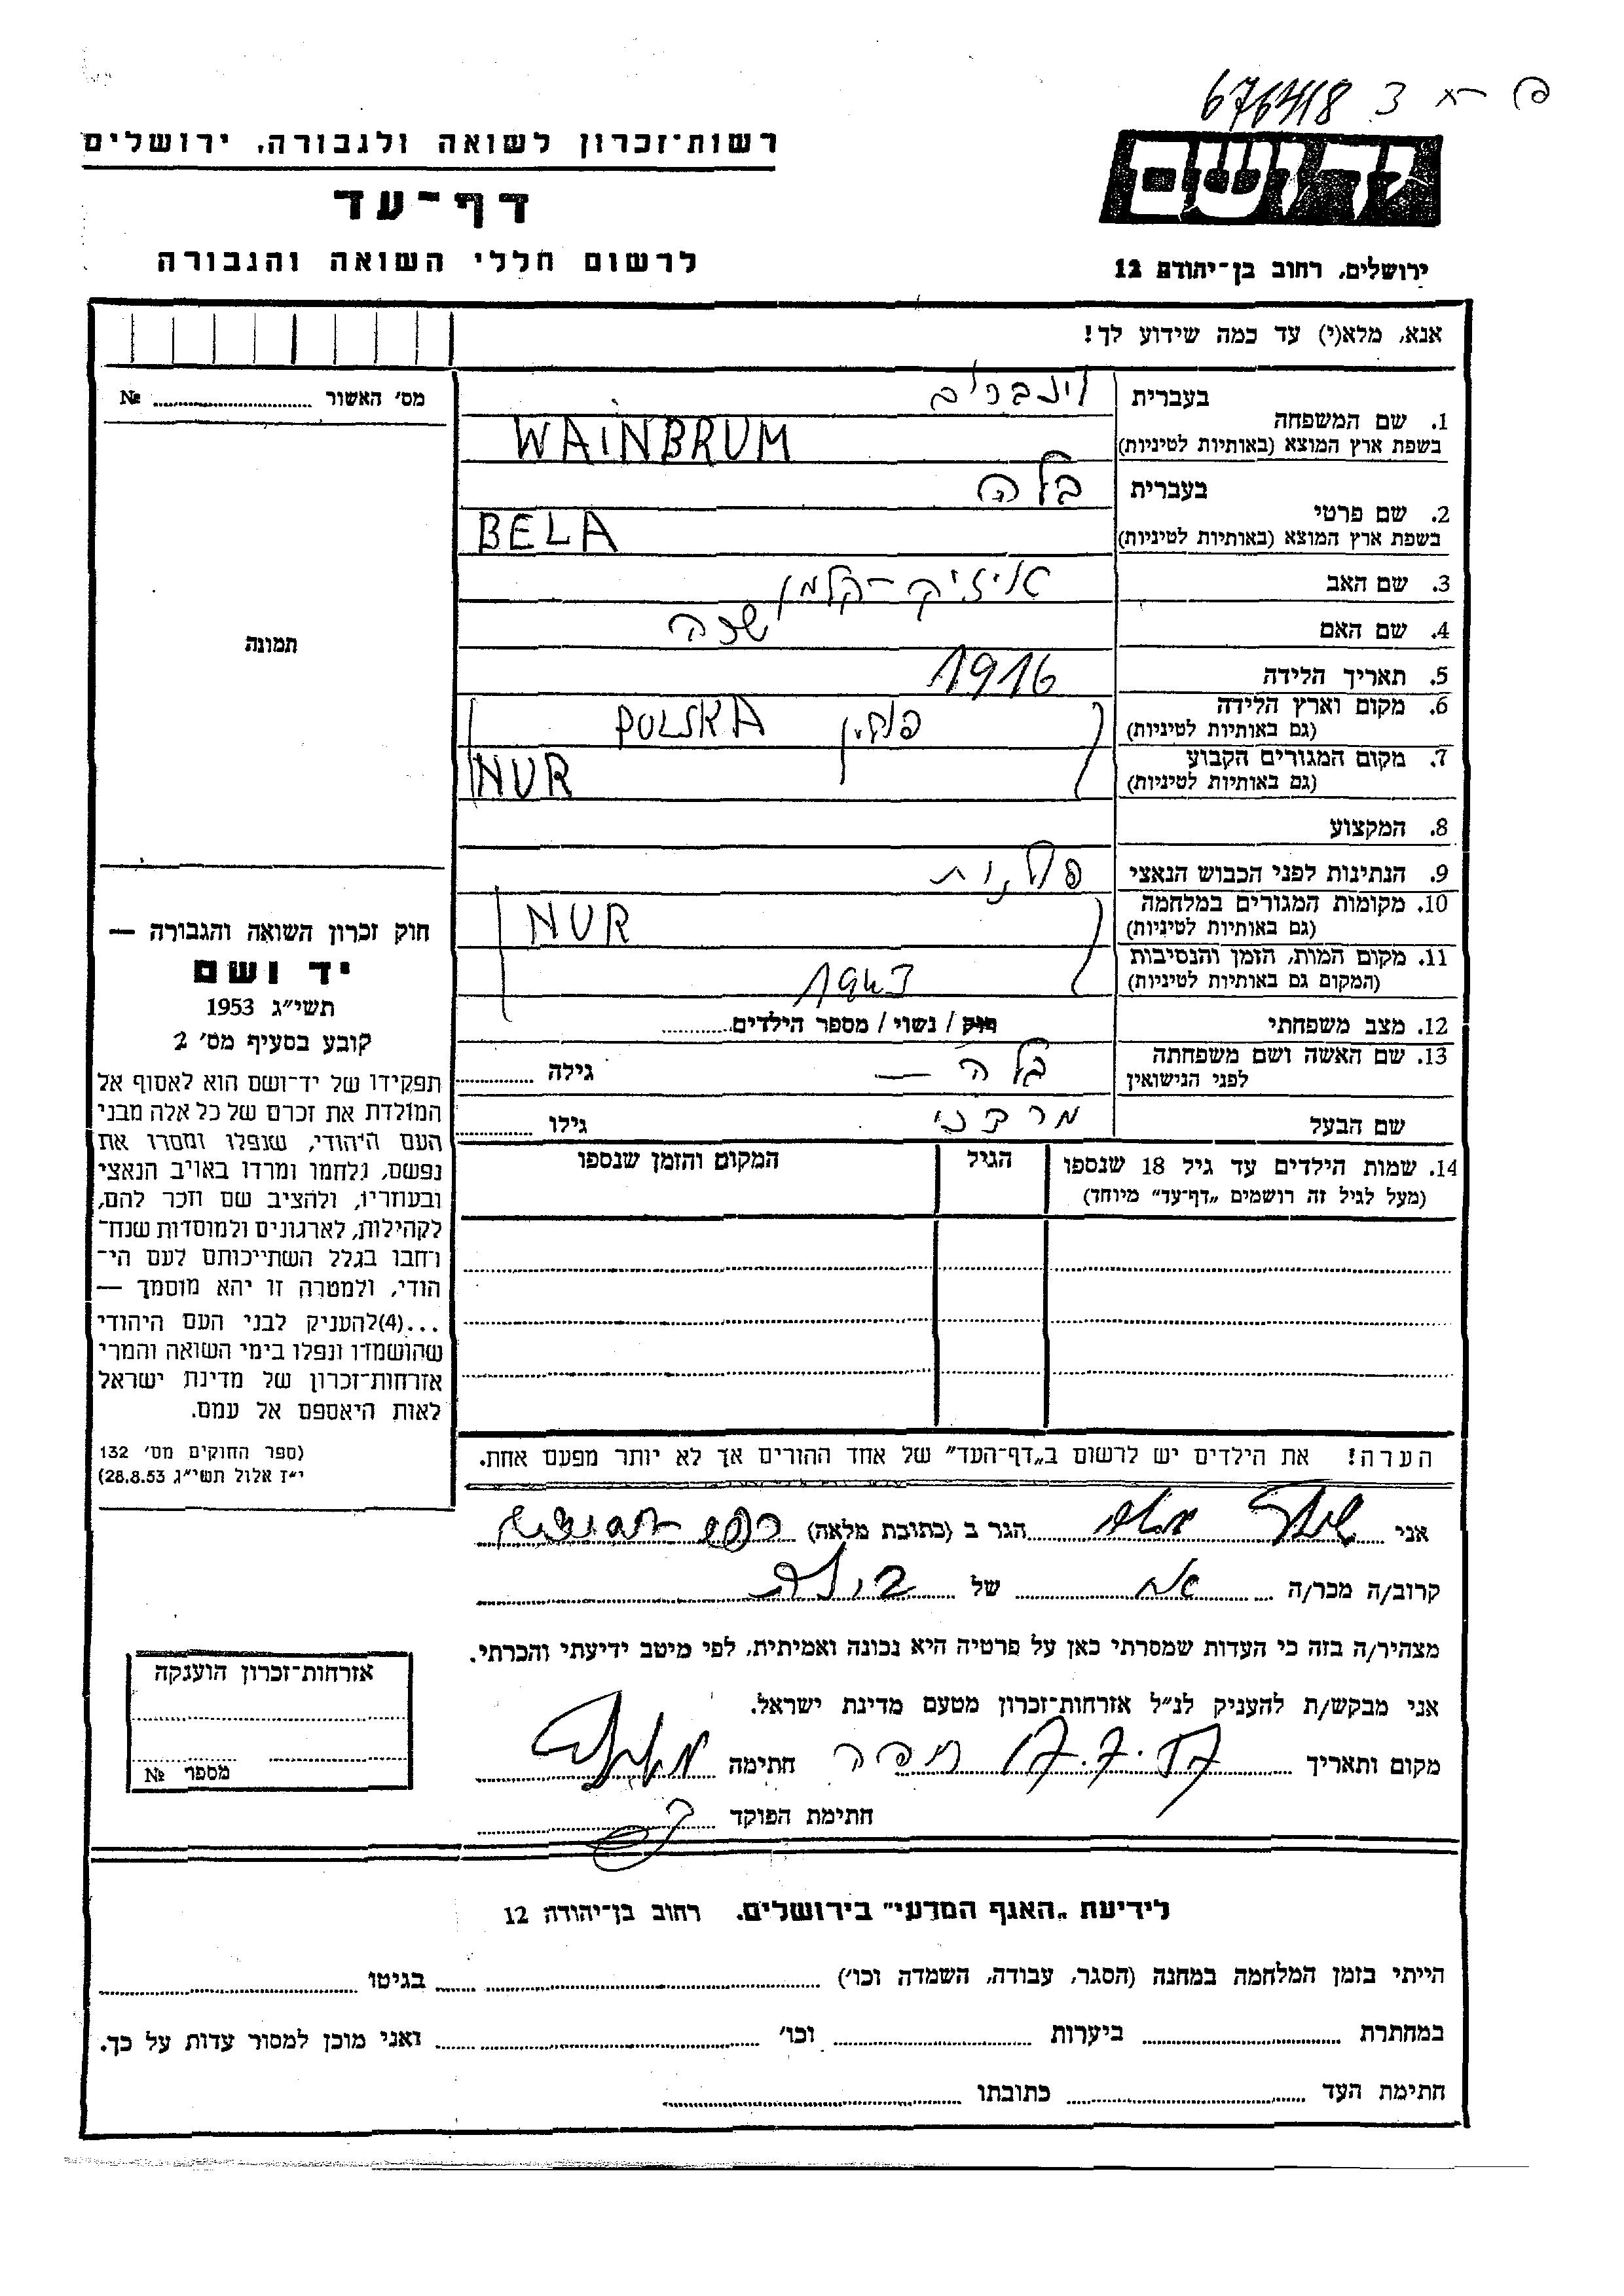 676418 3
רשות־זכרון לשואה ולגבורה, ירושלים
דף־עד
לרשום חללי השואה והגבורה
יד ושם
ירושלים, רחוב בן־יהודה 12
אנא, מלא(י) עד כמה שידוע לך!
מס׳ האשור № 
1. שם המשפחה
בעברית
בשפת ארץ המוצא (באותיות לטיניות) WAINBRUM
2. שם פרטי
בעברית בלה
בשפת ארץ המוצא (באותיות לטיניות) BELA
3. שם האב אייזיק־קלמן
4. שם האם
5. תאריך הלידה 1916
6. מקום וארץ הלידה פולין POLSKA
(גם באותיות לטיניות)
7. מקום המגורים הקבוע NUR
(גם באותיות לטיניות)
8. המקצוע
9. הנתינות לפני הכבוש הנאצי פולנית
10. מקומות המגורים במלחמה NUR
(גם באותיות לטיניות)
11. מקום המות, הזמן והנסיבות 1943
(המקום גם באותיות לטיניות)
12. מצב משפחתי רווק / נשוי / מספר הילדים
13. שם האשה ושם משפחתה בלה — גילה
לפני הנישואין
שם הבעל מרדכי גילו
14. שמות הילדים עד גיל 18 שנספו הגיל המקום והזמן שנספו
(מעל לגיל זה רושמים „דף־עד״ מיוחד)
הערה! את הילדים יש לרשום ב„דף־העד״ של אחד ההורים אך לא יותר מפעם אחת.
תמונה
חוק זכרון השואה והגבורה —
יד ושם
תשי״ג 1953
קובע בסעיף מס׳ 2
תפקידו של יד־ושם הוא לאסוף אל
המולדת את זכרם של כל אלה מבני
העם היהודי, שנפלו ומסרו את
נפשם, נלחמו ומרדו באויב הנאצי
ובעוזריו, ולהציב שם וזכר להם,
לקהילות, לארגונים ולמוסדות שנח־
רחבו בגלל השתייכותם לעם הי־
הודי, ולמטרה זו יהא מוסמך —
...(4)להעניק לבני העם היהודי
שהושמדו ונפלו בימי השואה והמרי
אזרחות־זכרון של מדינת ישראל
לאות היאספם אל עמם.
(ספר החוקים מס׳ 132
י״ז אלול תשי״ג 28.8.53)
אני הגר ב (כתובת מלאה)
קרוב/ה מכר/ה אח של
מצהיר/ה בזה כי העדות שמסרתי כאן על פרטיה היא נכונה ואמיתית, לפי מיטב ידיעתי והכרתי.
אני מבקש/ת להעניק לנ״ל אזרחות־זכרון מטעם מדינת ישראל.
מקום ותאריך 17.7.57 חיפה חתימה
חתימת הפוקד
אזרחות־זכרון הוענקה
מספר №
לידיעת „האגף המדעי״ בירושלים. רחוב בן־יהודה 12
הייתי בזמן המלחמה במחנה (הסגר, עבודה, השמדה וכו׳) בגיטו
במחתרת ביערות וכו׳ ואני מוכן למסור עדות על כך.
חתימת העד כתובתו